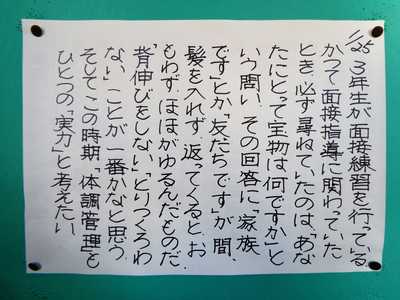 1/25 3年生が面接練習を行っている。
かつて面接指導に関わっていた
とき、必ず尋ねていたのは、「あな
たにとって宝物は何ですか」と
いう問い。その回答に「家族
です」とか「友だちです」が、間、
髪を入れず、返ってくると、お
もわず、ほほがゆるんだものだ。
「背伸びをしない」「とりつくろわ
ない」ことが一番かなと思う。
そして、この時期、「体調管理」も
ひとつの「実力」と考えたい。